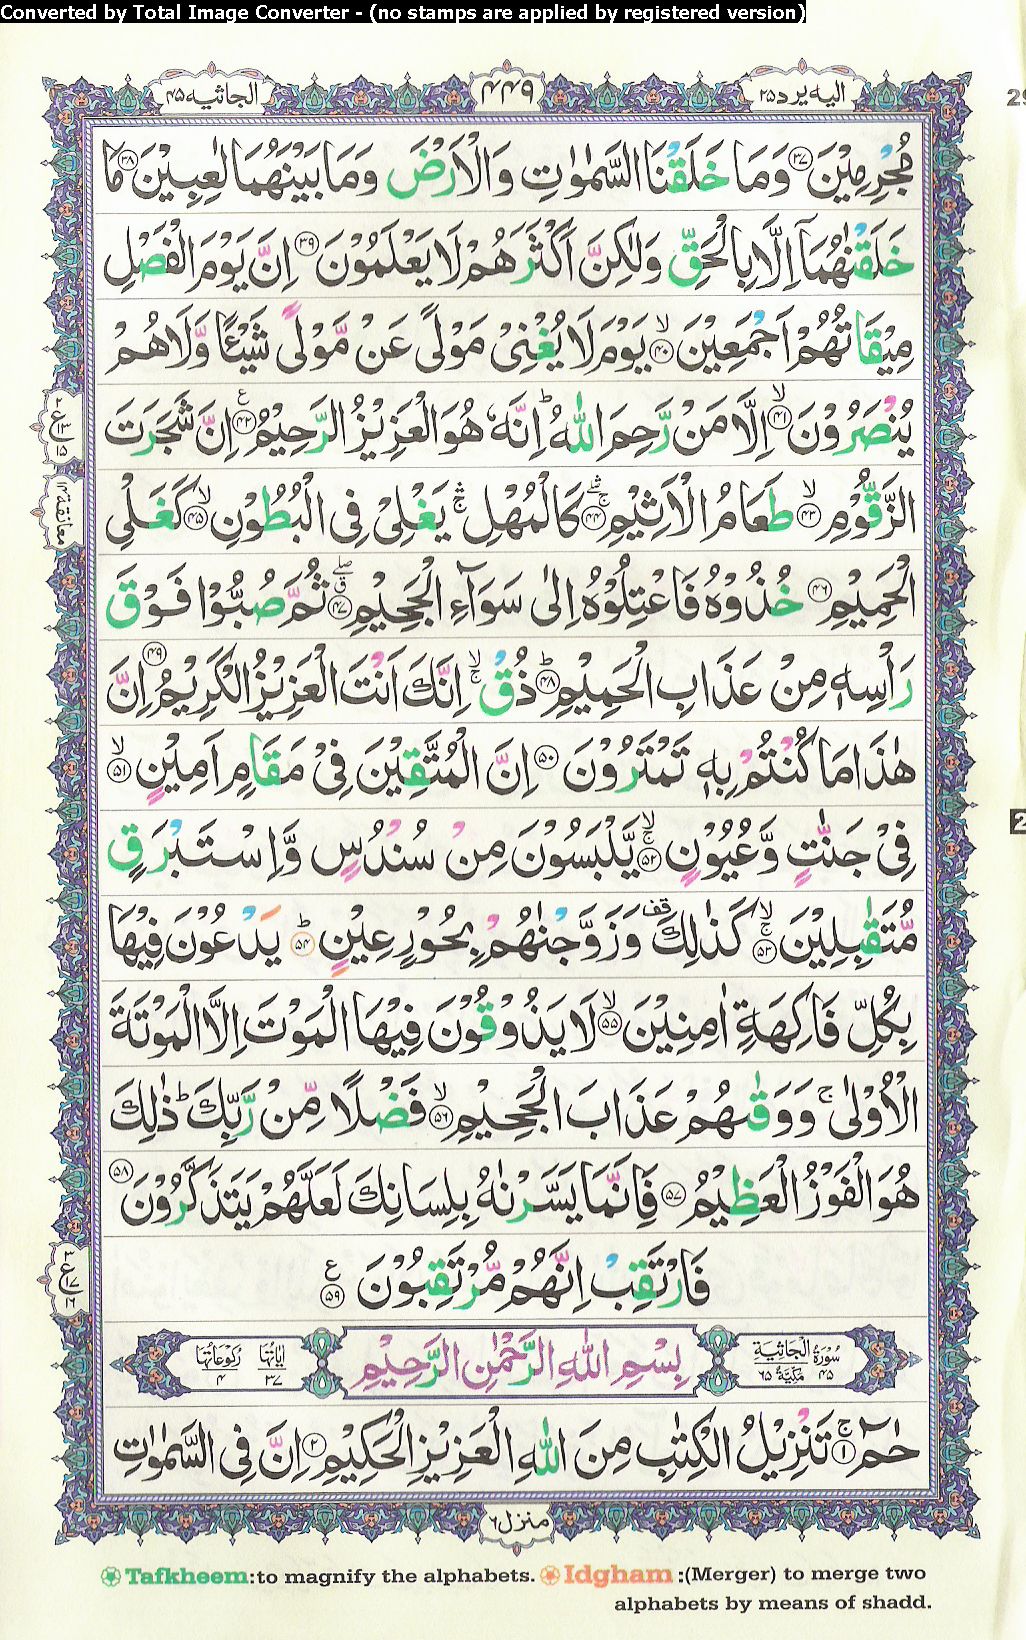 Converted by Total Image Converter - (no stamps are applied by registered version)
الجاثية ٤٥ ٤٤٩ اليه يرد ٢٥
مُجْرِمِيْنَ ﴿۳۷﴾ وَمَا خَلَقْنَا السَّمٰوٰتِ وَالْاَرْضَ وَمَا بَيْنَهُمَا لٰعِبِيْنَ ﴿۳۸﴾ مَا
خَلَقْنٰهُمَاۤ اِلَّا بِالْحَقِّ وَلٰكِنَّ اَكْثَرَهُمْ لَا يَعْلَمُوْنَ ﴿۳۹﴾ اِنَّ يَوْمَ الْفَصْلِ
مِيْقَاتُهُمْ اَجْمَعِيْنَ ۙ﴿۴۰﴾ يَوْمَ لَا يُغْنِىْ مَوْلًى عَنْ مَّوْلًى شَيْـًٔا وَّلَا هُمْ
يُنْصَرُوْنَ ۙ﴿۴۱﴾ اِلَّا مَنْ رَّحِمَ اللّٰهُ ؕ اِنَّهٗ هُوَ الْعَزِيْزُ الرَّحِيْمُ ﴿۴۲﴾ اِنَّ شَجَرَتَ
الزَّقُّوْمِ ۙ﴿۴۳﴾ طَعَامُ الْاَثِيْمِ ۛۚ﴿۴۴﴾ كَالْمُهْلِ ۛۚ يَغْلِىْ فِى الْبُطُوْنِ ۙ﴿۴۵﴾ كَغَلْىِ
الْحَمِيْمِ ﴿۴۶﴾ خُذُوْهُ فَاعْتِلُوْهُ اِلٰى سَوَآءِ الْجَحِيْمِ ۖق﴿۴۷﴾ ثُمَّ صُبُّوْا فَوْقَ
رَاْسِهٖ مِنْ عَذَابِ الْحَمِيْمِ ؕ﴿۴۸﴾ ذُقْ ۙۚ اِنَّكَ اَنْتَ الْعَزِيْزُ الْكَرِيْمُ ﴿۴۹﴾ اِنَّ
هٰذَا مَا كُنْتُمْ بِهٖ تَمْتَرُوْنَ ﴿۵۰﴾ اِنَّ الْمُتَّقِيْنَ فِىْ مَقَامٍ اَمِيْنٍ ۙ﴿۵۱﴾
فِىْ جَنّٰتٍ وَّعُيُوْنٍ ۙۚ﴿۵۲﴾ يَّلْبَسُوْنَ مِنْ سُنْدُسٍ وَّاِسْتَبْرَقٍ
مُّتَقٰبِلِيْنَ ۙۚ﴿۵۳﴾ كَذٰلِكَ قف وَزَوَّجْنٰهُمْ بِحُوْرٍ عِيْنٍ ؕ﴿۵۴﴾ يَدْعُوْنَ فِيْهَا
بِكُلِّ فَاكِهَةٍ اٰمِنِيْنَ ۙ﴿۵۵﴾ لَا يَذُوْقُوْنَ فِيْهَا الْمَوْتَ اِلَّا الْمَوْتَةَ
الْاُوْلٰى ۚ وَوَقٰىهُمْ عَذَابَ الْجَحِيْمِ ۙ﴿۵۶﴾ فَضْلًا مِّنْ رَّبِّكَ ؕ ذٰلِكَ
هُوَ الْفَوْزُ الْعَظِيْمُ ﴿۵۷﴾ فَاِنَّمَا يَسَّرْنٰهُ بِلِسَانِكَ لَعَلَّهُمْ يَتَذَكَّرُوْنَ ﴿۵۸﴾
فَارْتَقِبْ اِنَّهُمْ مُّرْتَقِبُوْنَ ﴿۵۹﴾ ع
سُوْرَةُ الْجَاثِيَةِ ٤٥ مَكِّيَّةٌ ٦٥ بِسْمِ اللّٰهِ الرَّحْمٰنِ الرَّحِيْمِ اٰيَاتُهَا ٣٧ رُكُوْعَاتُهَا ٤
حٰمٓ ۚ﴿۱﴾ تَنْزِيْلُ الْكِتٰبِ مِنَ اللّٰهِ الْعَزِيْزِ الْحَكِيْمِ ﴿۲﴾ اِنَّ فِى السَّمٰوٰتِ
منزل ٦
Tafkheem:to magnify the alphabets. Idgham :(Merger) to merge two
alphabets by means of shadd.